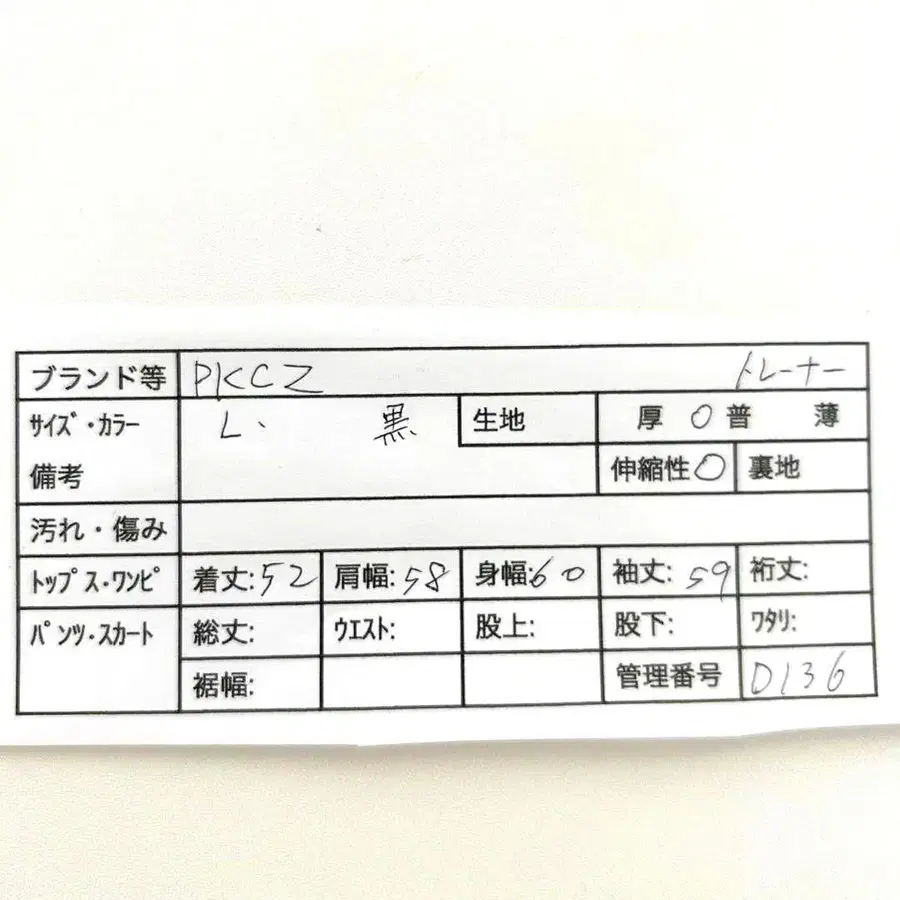 ブランド等 PKCZ トレーナー
サイズ・カラー L. 黒 生地 厚 ○ 普 薄
備考 伸縮性○ 裏地
汚れ・傷み
トップス・ワンピ 着丈:52 肩幅:58 身幅:60 袖丈:59 裄丈:
パンツ・スカート 総丈: ウエスト: 股上: 股下: ワタリ:
裾幅: 管理番号 D136